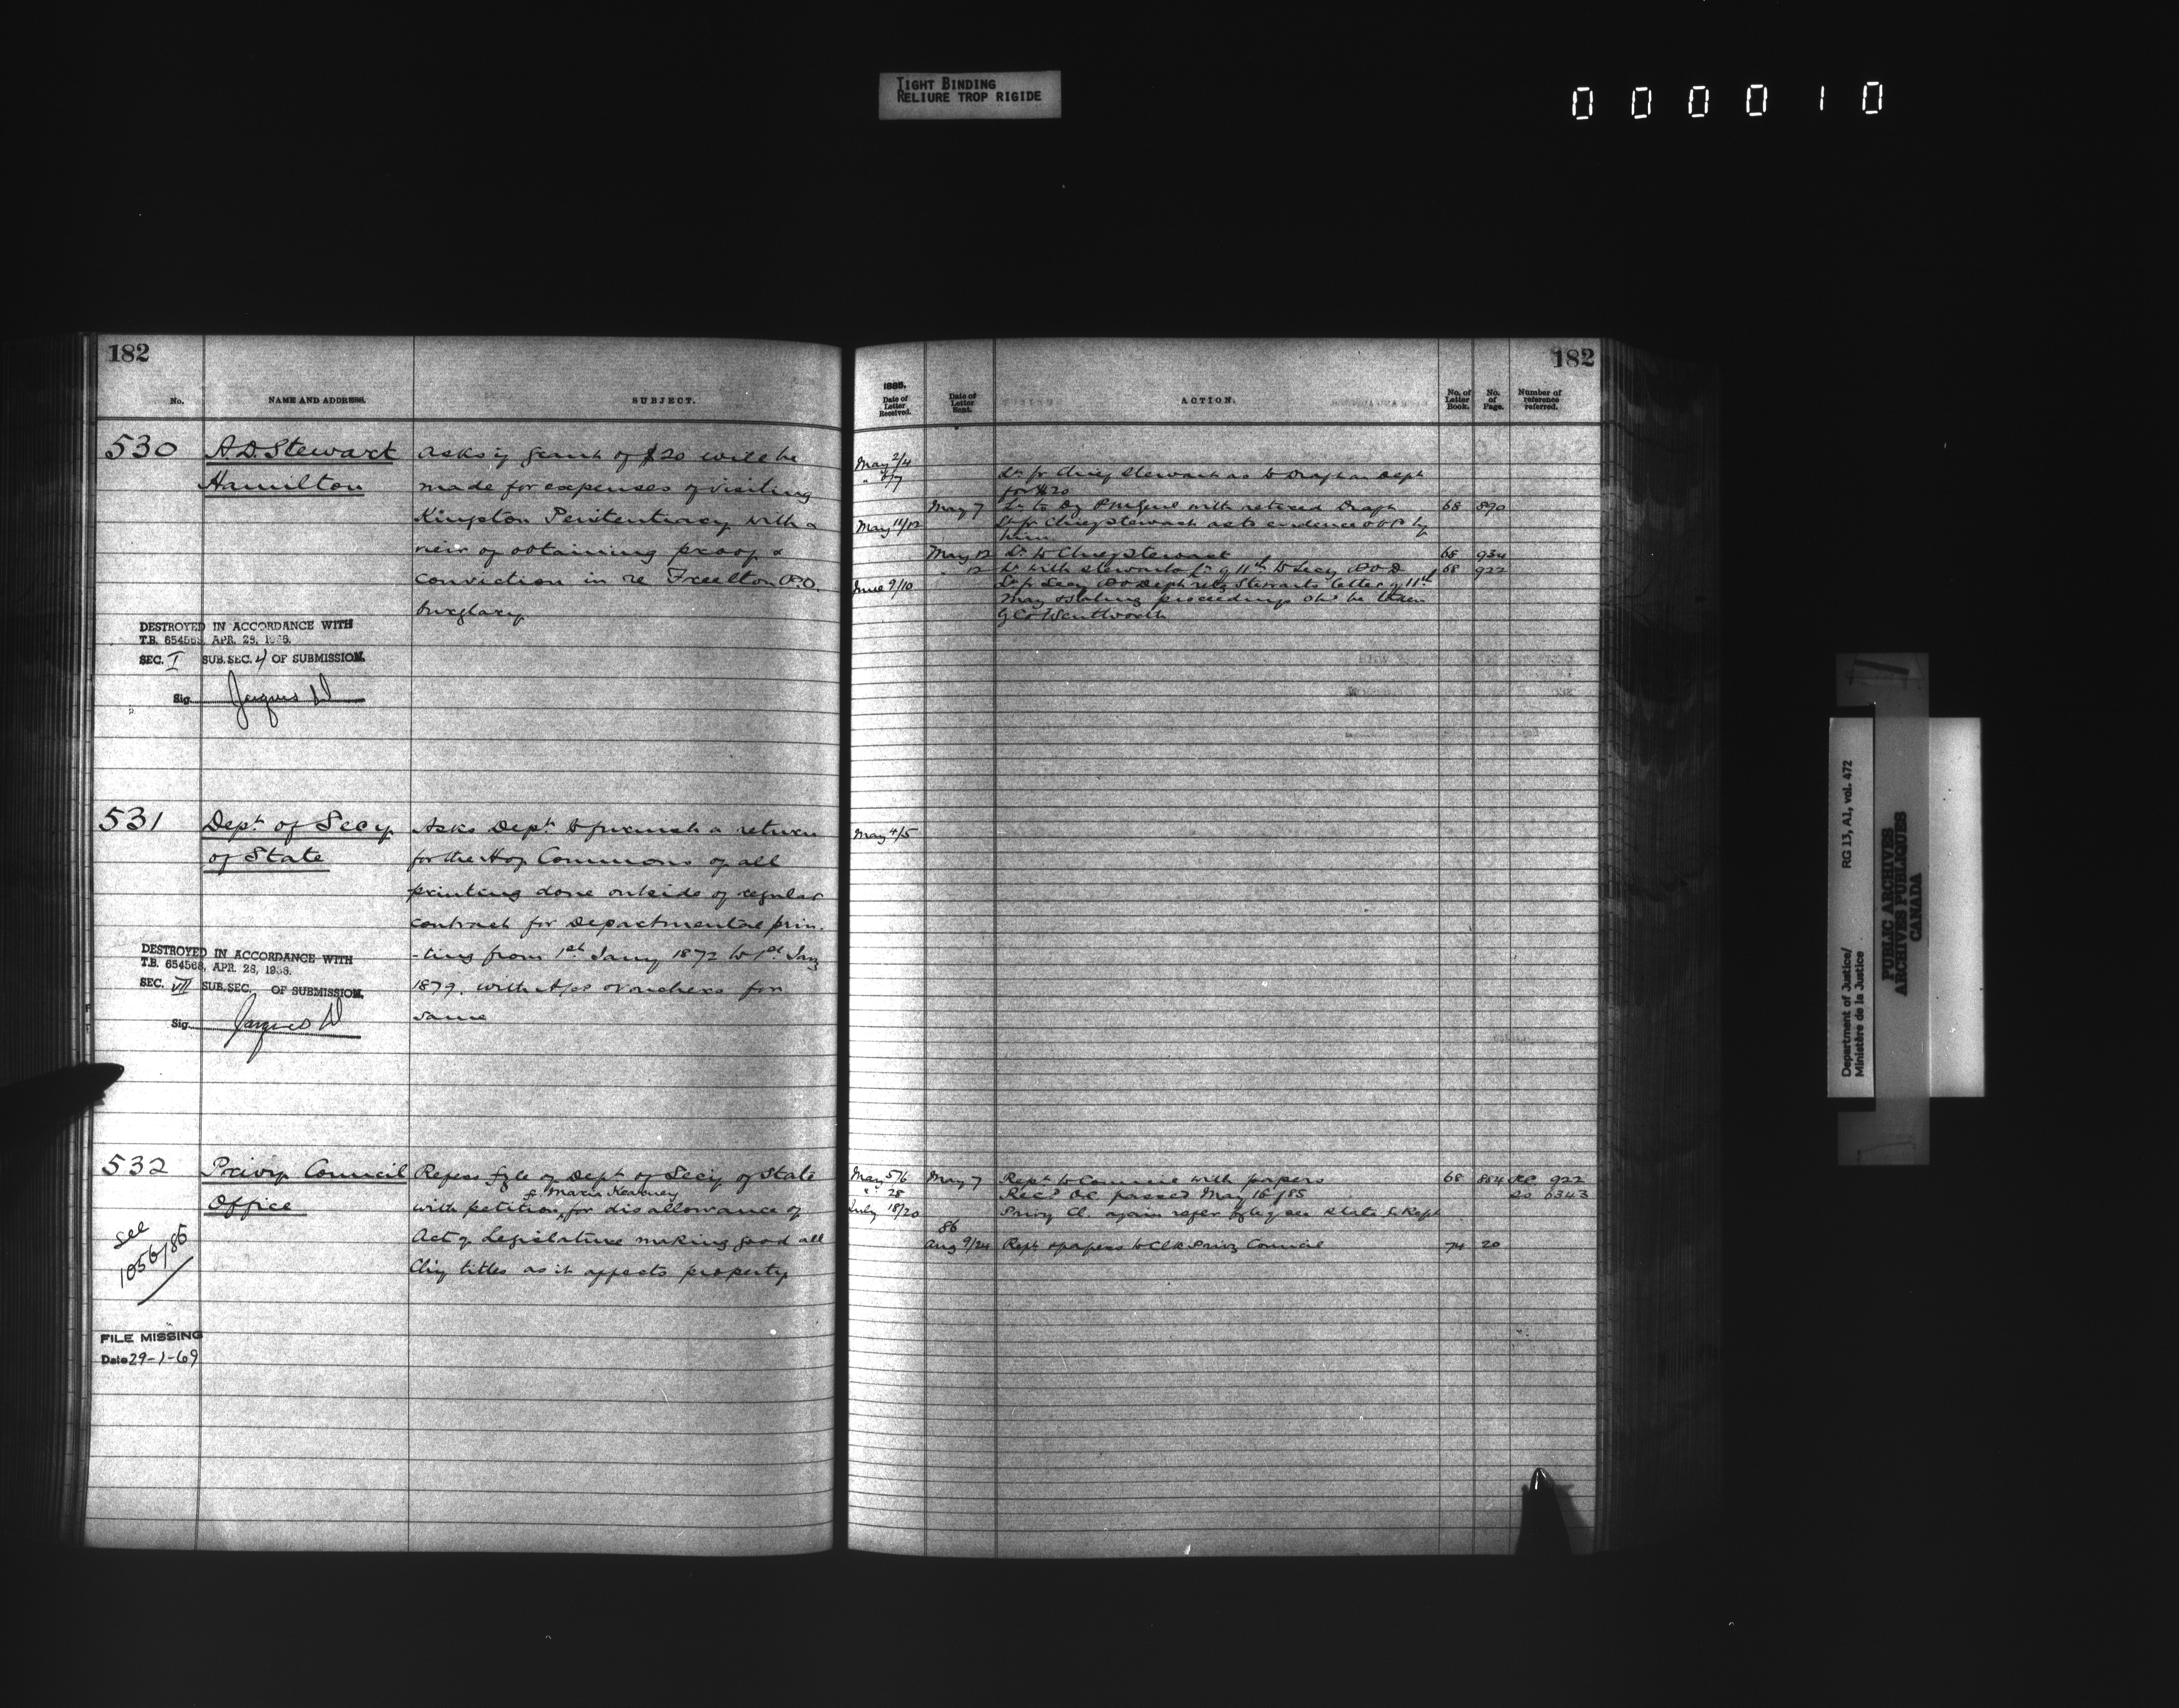 TIGHT BINDING
RELIURE TROP RIGIDE
000010
182
No.
NAME AND ADDRESS.
SUBJECT.
530
A.D. Stewart
Hamilton
Asks if grant of $20 will be
made for expenses of visiting
Kingston Penitentiary with a
view of obtaining proof &
conviction in re Freelton P.O.
burglary
DESTROYED IN ACCORDANCE WITH
T.B. 654568, APR. 28, 1938.
SEC. I SUB.SEC. 4 OF SUBMISSION.
Sig.
531
Dept. of Secy
of State
Asks Dept. to furnish a return
for the H of Commons of all
printing done outside of regular
contract for Departmental prin-
-ting from 1st Jany 1872 to 1st Jany
1879. with A/cs & vouchers for
same
DESTROYED IN ACCORDANCE WITH
T.B. 654568, APR. 28, 1938.
SEC. VII SUB.SEC. OF SUBMISSION.
Sig.
532
Privy Council
Office
See
1056/86
Refers fyle of Dept of Secy of State
of Maria Kearney
with petition, for disallowance of
Act of Legislature making good all
City titles as it affects property
FILE MISSING
Date 29-1-69
182
1885.
Date of Letter Received.
Date of Letter Sent.
ACTION.
No. of Letter Book.
No. of Page.
Number of reference referred.
May 2/4
" 6/7 Lr fr Chief Stewart as to Draft on Dept
for $20
May 7 Lr to with retired Draft 68 890
May 11/12 Lr fr Chief Stewart as to evidence by
him
May 12 Lr to Chief Stewart 68 934
" 12 Lr with Stewarts Lr of 11th to Secy P.O.D 68 922
June 9/10 Lr fr Secy P O Dept retg Stewarts letter of 11th
May & stating proceedings shd be taken
by Co Wentworth
May 4/5
May 5/6 May 7 Rept to Council with papers 68 884 P.C. 922
" 28 Recd O.C. passed May 16/85 SS 6343
July 18/20 Privy Cl. again refer fyle of Sec State for Rept
86
Aug 9/24 Rept & papers to Clk Privy Council 74 20
Department of Justice/
Ministère de la Justice
RG 13, A1, vol. 472
PUBLIC ARCHIVES
ARCHIVES PUBLIQUES
CANADA